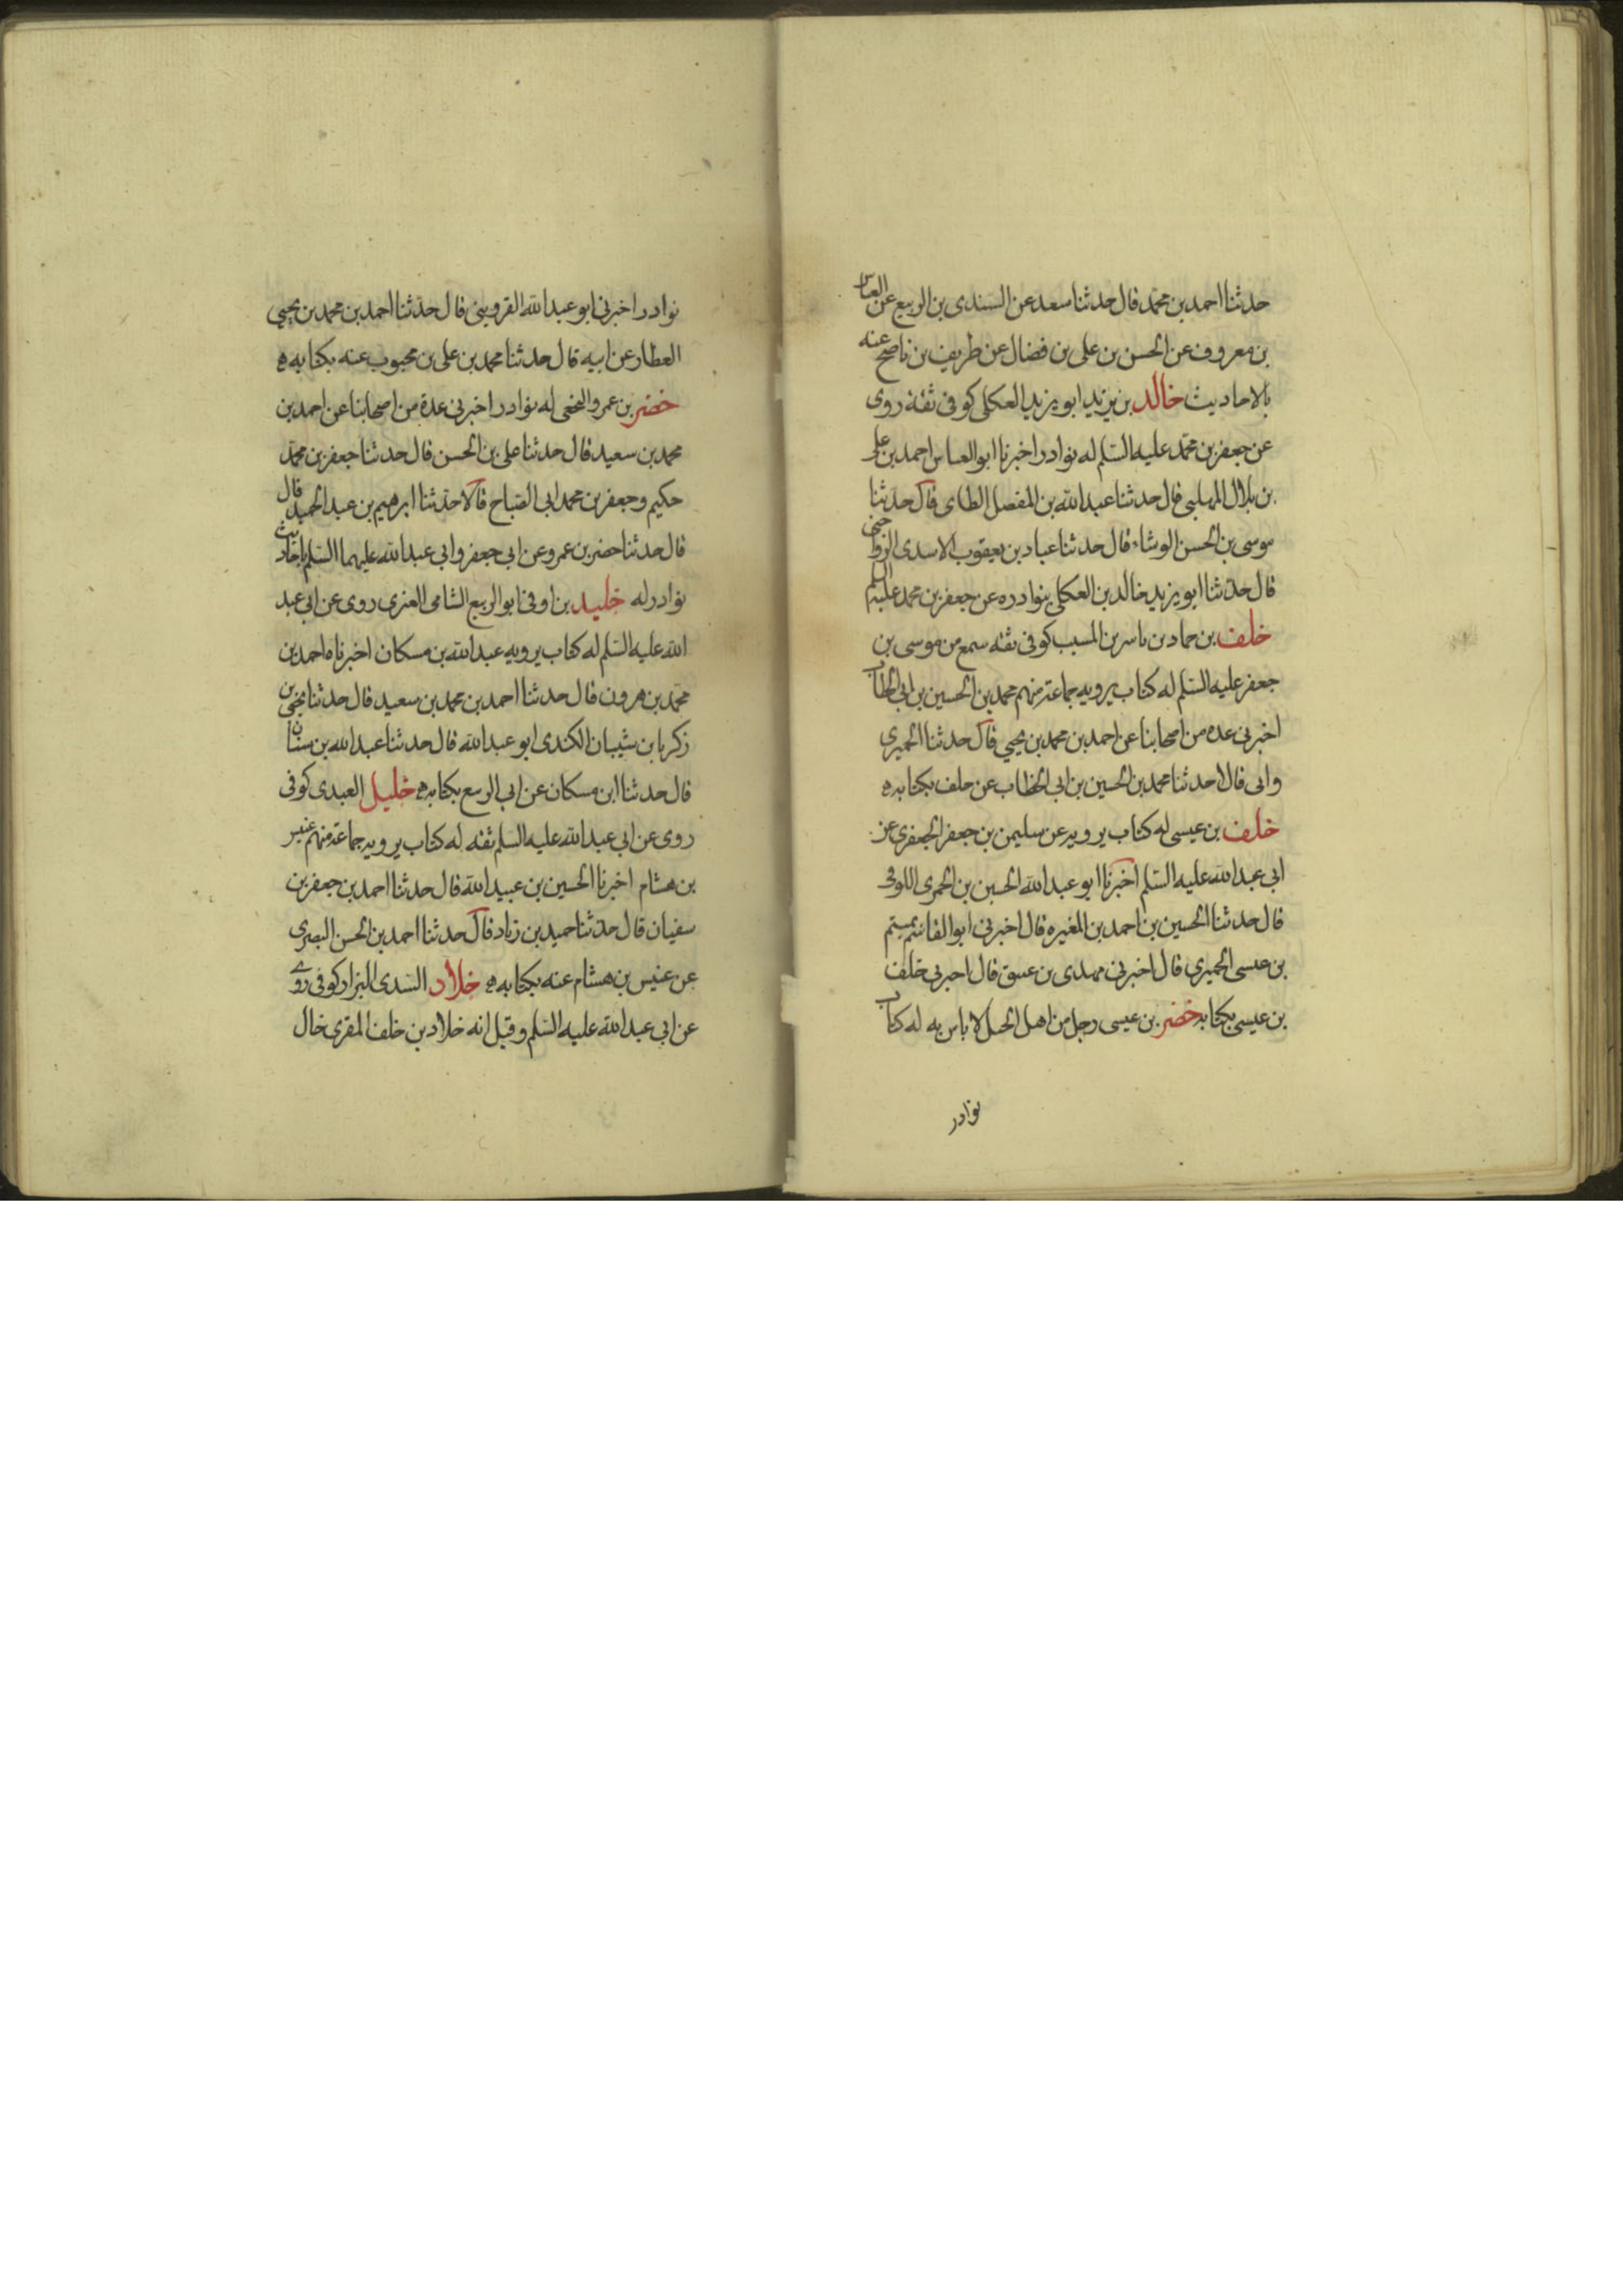 حدثنا احمد بن محمد قال حدثنا سعد عن السندى بن الربيع عن العباس
بن معروف عن الحسن بن على بن فضال عن طريف بن ناصح عنه
بالاحاديث خالد بن يزيد ابو يزيد العكلى كوفى ثقة روى
عن جعفر بن محمد عليه السلم له نوادر اخبرنا ابو العباس احمد بن على
بن بلال المهلبى قال حدثنا عبد الله بن المفضل الطاى قال حدثنا
موسى بن الحسن الوشاء قال حدثنا عباد بن يعقوب الاسدى الرواجنى
قال حدثنا ابو يزيد خالد بن العكلى بنوادره عن جعفر بن محمد عليهم السلم
خلف بن حماد بن ناسر بن المسيب كوفى ثقه سمع من موسى بن
جعفر عليه السلم له كتاب يرويه جماعة منهم محمد بن الحسين بن ابى الخطاب
اخبرنى عده من اصحابنا عن احمد بن محمد بن يحيى قال حدثنا الحميرى
وابى قالا حدثنا محمد بن الحسين بن ابى الخطاب عن خلف بكتابه ه
خلف بن عيسى له كتاب يرويه عن سليمن بن جعفر الجعفرى عن
ابى عبد الله عليه السلم اخبرنا ابو عبد الله الحسين بن الخمرى اللوفى
قال حدثنا الحسين بن احمد بن المغيره قال اخبرنى ابو القاسم ميتم
بن عيسى الحميرى قال اخبرنى مهدى بن عتيق قال اخبرنى خلف
بن عيسى بكتابه خضر بن عيسى رجل من اهل الجبل لا باس به له كتاب
نوادر
نوادر اخبرنى ابو عبد الله القزوينى قال حدثنا احمد بن محمد بن يحيى
العطار عن ابيه قال حدثنا محمد بن على بن محبوب عنه بكتابه ه
خضر بن عمرو النخعى له نوادر اخبرنى عدة من اصحابنا عن احمد بن
محمد بن سعيد قال حدثنا على بن الحسن قال حدثنا جعفر بن محمد
حكيم وجعفر بن محمد ابى الصباح قالا حدثنا ابرهيم بن عبد الحميد قال
قال حدثنا خضر بن عمرو عن ابى جعفر وابى عبد الله عليهما السلم باحاديث
نوادر له خليد بن اوفى ابو الربيع الشامى العنزى روى عن ابى عبد
الله عليه السلم له كتاب يرويه عبد الله بن مسكان اخبرناه احمد بن
محمد بن هرون قال حدثنا احمد بن محمد بن سعيد قال حدثنا يحيى بن
زكريا بن شيبان الكندى ابو عبد الله قال حدثنا عبد الله بن سنان
قال حدثنا ابن مسكان عن ابى الربيع بكتابه ه خليل العبدى كوفى
روى عن ابى عبد الله عليه السلم ثقه له كتاب يرويه جماعة منهم عنيس
بن هشام اخبرنا الحسين بن عبيد الله قال حدثنا احمد بن جعفر بن
سفيان قال حدثنا حميد بن زياد قال حدثنا احمد بن الحسن البصرى
عن عنيس بن هشام عنه بكتابه ه خلاد السدى البزار كوفى روى
عن ابى عبد الله عليه السلم وقيل انه خلاد بن خلف المقرى خال